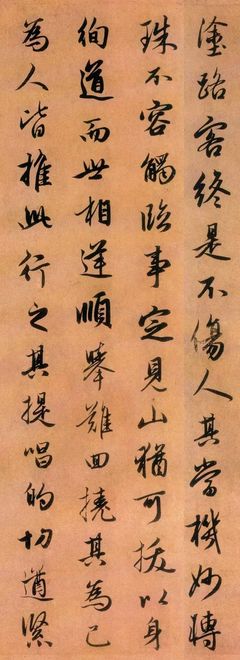 塗路客終是不傷人其當機妙轉
珠不容觸臨事定見山猶可拔以身
徇道而世相違順舉難回撓其為己
為人皆推此行之其提唱的切遒緊